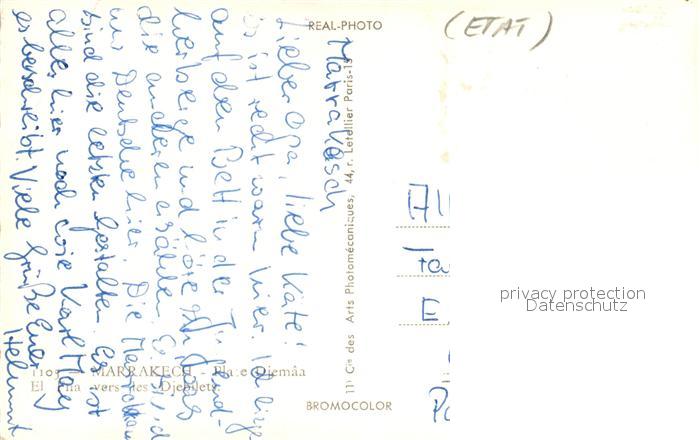 REAL-PHOTO
(ETAT)
Marrakesch
Lieber Opa, liebe Käte!
Es ist recht warm hier. Ich liege
auf dem Bett in der Jugend-
herberge und höre zu, was
die anderen erzählen. Es sind
nur Deutsche hier. Die Menschen
sind die letzten Gestalten. Es ist
alles hier noch wie Karl May
es beschreibt. Viele Grüße Euer
Helmut
MARRAKECH - Place Djemâa
El Fna vers les Djebilets.
Cie des Arts Photomécaniques, 44, r. Letellier Paris-15
BROMOCOLOR
All
E
privacy protection
Datenschutz